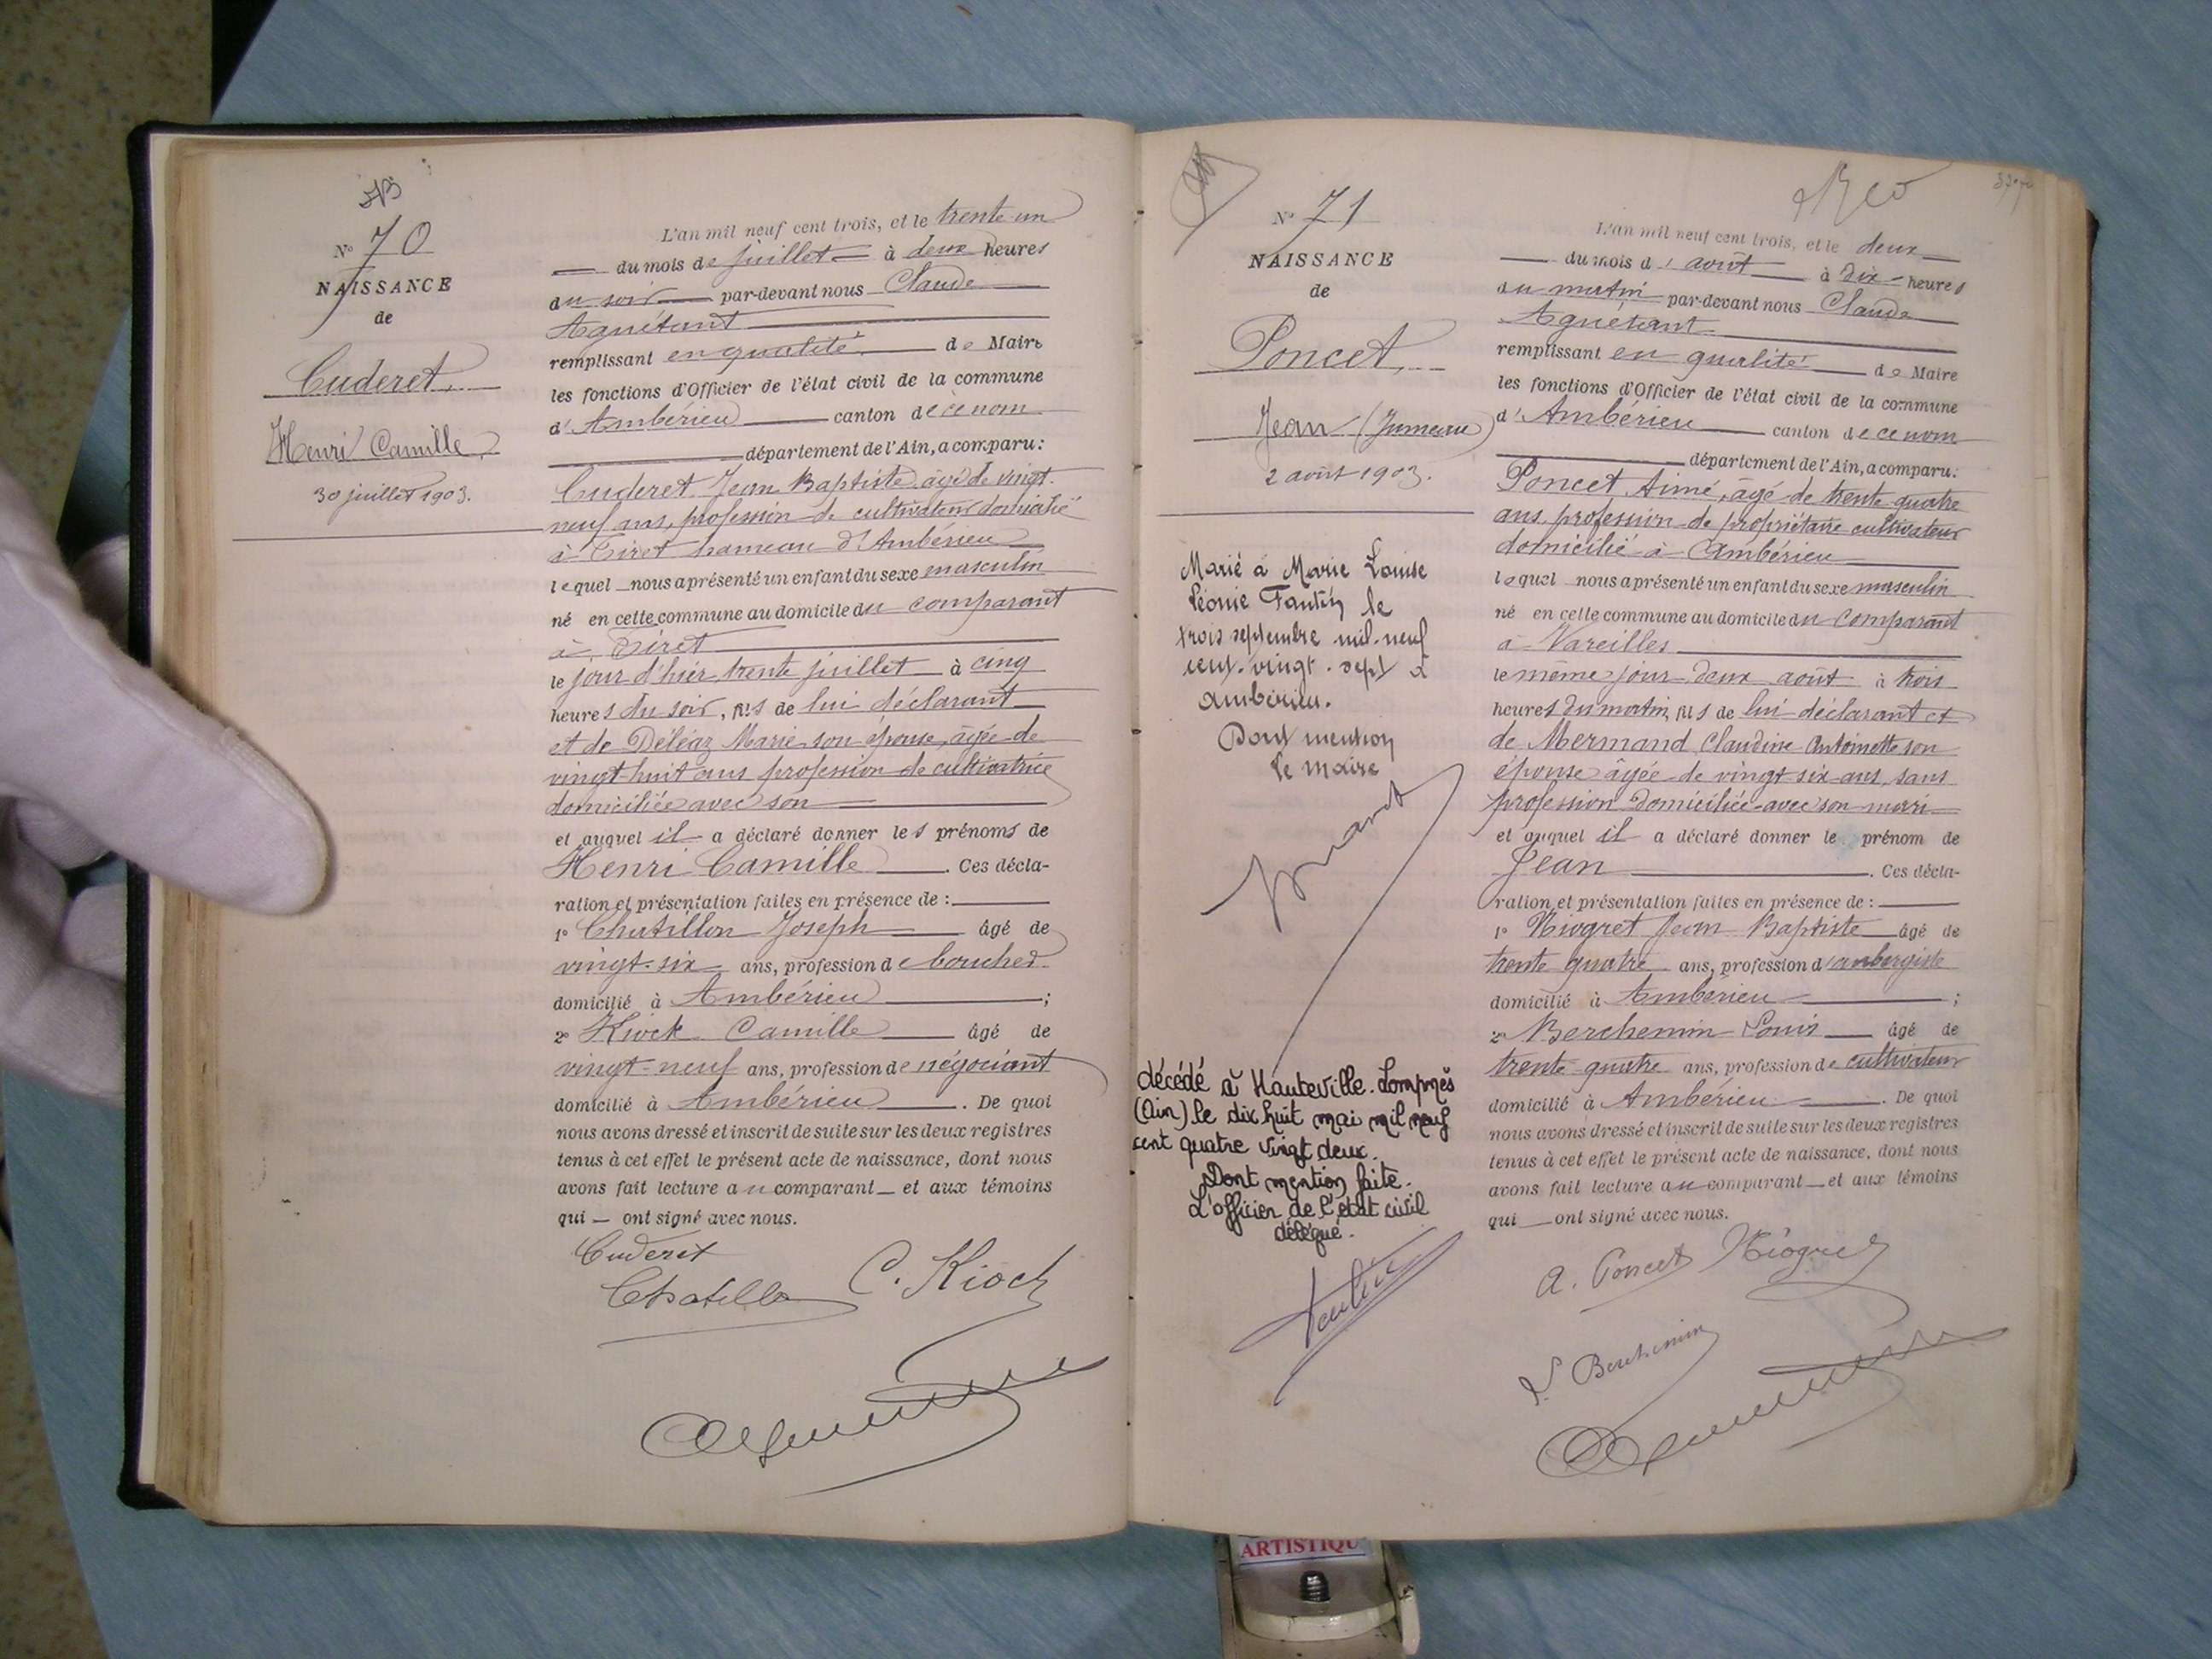 N° 70
NAISSANCE
de
Cuderet
Henri Camille
30 juillet 1903.
L'an mil neuf cent trois, et le trente un
du mois de juillet à deux heures
du soir par-devant nous Claude
Aguétant
remplissant en qualité de Maire
les fonctions d'Officier de l'état civil de la commune
d'Ambérieu canton de ce nom
département de l'Ain, a comparu:
Cuderet Jean Baptiste âgé de vingt-
neuf ans, profession de cultivateur domicilié
à Tiret hameau d'Ambérieu
lequel nous a présenté un enfant du sexe masculin
né en cette commune au domicile du comparant
à Tiret
le jour d'hier, trente juillet à cinq
heures du soir, fils de lui déclarant
et de Déléaz Marie son épouse, âgée de
vingt-huit ans profession de cultivatrice
domiciliée avec son
et auquel il a déclaré donner les prénoms de
Henri Camille. Ces décla-
ration et présentation faites en présence de :
1° Chatillon Joseph âgé de
vingt-six ans, profession de boucher
domicilié à Ambérieu ;
2° Kiock Camille âgé de
vingt-neuf ans, profession de négociant
domicilié à Ambérieu. De quoi
nous avons dressé et inscrit de suite sur les deux registres
tenus à cet effet le présent acte de naissance, dont nous
avons fait lecture au comparant et aux témoins
qui ont signé avec nous.
Cuderet
C. Kioch
N° 71
NAISSANCE
de
Poncet
Jean (Jumeau)
2 août 1903.
Marié à Marie Louise
Léonie Fantin le
trois septembre mil-neuf
cent-vingt-sept à
Ambérieu.
Dont mention
Le maire
décédé à Hauteville-Lompnès
(Ain) le dix huit mai mil neuf
cent quatre vingt deux.
Dont mention faite.
L'officier de l'état civil
délégué.
L'an mil neuf cent trois, et le deux
du mois d'août à dix heures
du matin par-devant nous Claude
Aguétant
remplissant en qualité de Maire
les fonctions d'Officier de l'état civil de la commune
d'Ambérieu canton de ce nom
département de l'Ain, a comparu:
Poncet Aimé, âgé de trente-quatre
ans profession de propriétaire cultivateur
domicilié à Ambérieu
lequel nous a présenté un enfant du sexe masculin
né en cette commune au domicile du comparant
à Vareilles
le même jour deux août à trois
heures du matin, fils de lui déclarant et
de Mermand Claudine Antoinette son
épouse âgée de vingt-six-ans, sans
profession domiciliée avec son mari
et auquel il a déclaré donner le prénom de
Jean. Ces décla-
ration et présentation faites en présence de :
1° Niogret Jean Baptiste âgé de
trente quatre ans, profession d'aubergiste
domicilié à Ambérieu ;
2° Berchemin Louis âgé de
trente-quatre ans, profession de cultivateur
domicilié à Ambérieu. De quoi
nous avons dressé et inscrit de suite sur les deux registres
tenus à cet effet le présent acte de naissance, dont nous
avons fait lecture au comparant et aux témoins
qui ont signé avec nous.
A. Poncet Niogret
L. Berchemin
ARTISTIQU